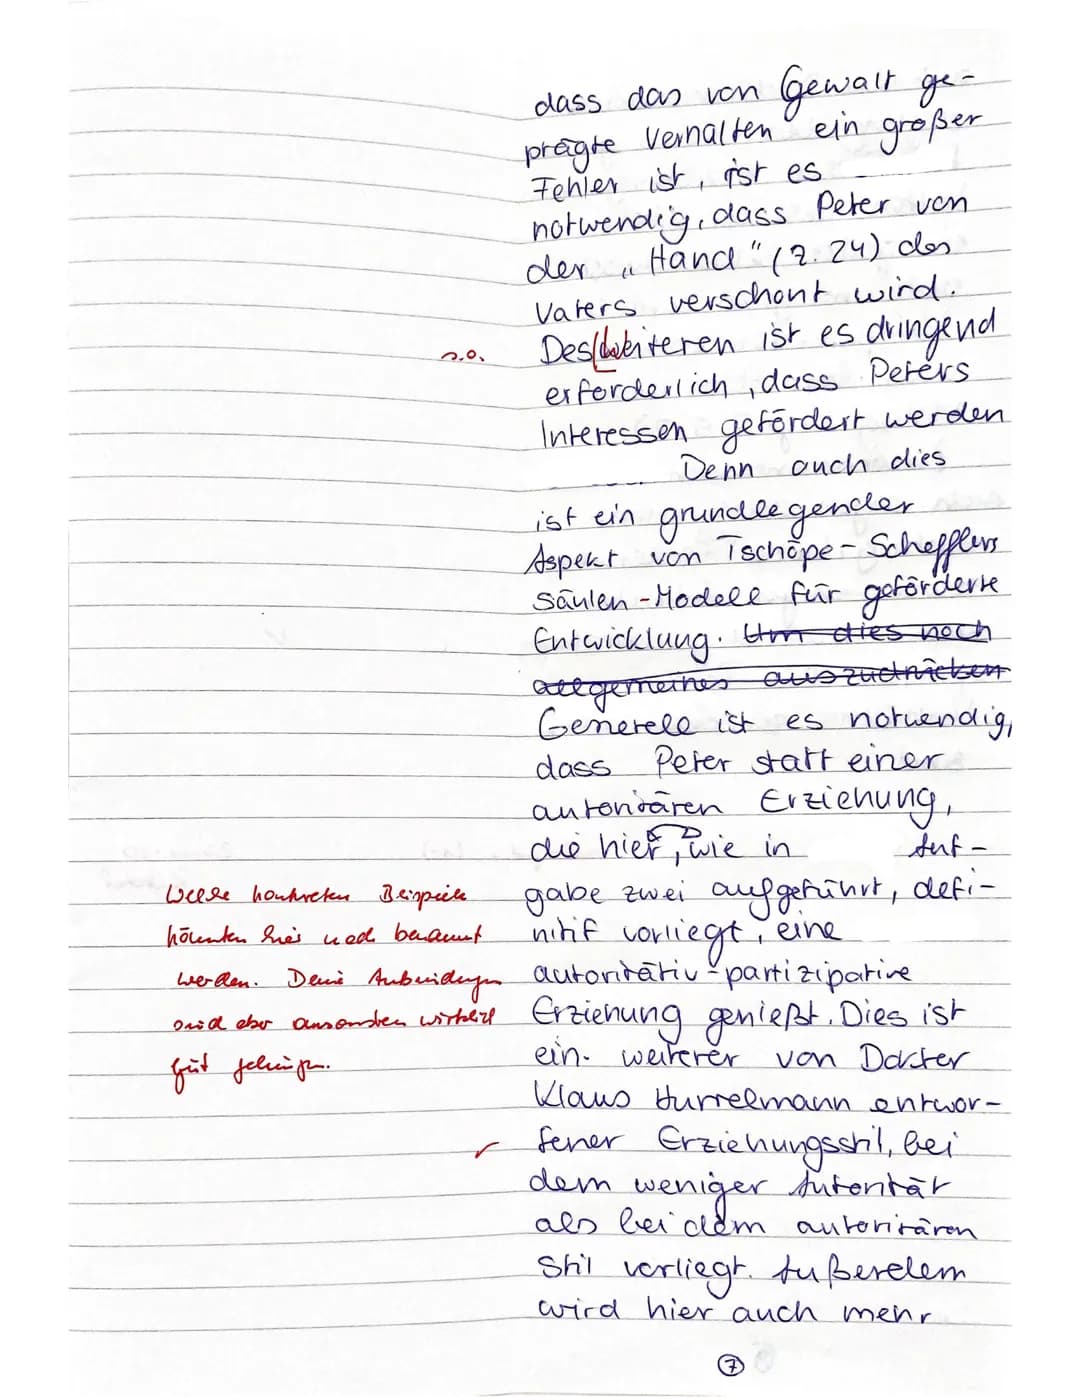 dass das von Gewalt ge-
prägte Verhalten ein großer
Fehler ist, ist es
notwendig, dass Peter von
der „Hand" (Z. 24) des
Vaters verschont wird.
s.o. Des weiteren ist es dringend
erforderlich, dass Peters
Interessen gefördert werden
Denn auch dies
ist ein grundlegender
Aspekt von Tschöpe-Schefflers
Säulen-Modell für geförderte
Entwicklung. Um dies noch
allgemeines auszudrücken
Generell ist es notwendig,
dass Peter statt einer
autoritären Erziehung,
die hier, wie in Auf-
gabe zwei aufgeführt, defi-
nitif vorliegt, eine
autoritätiv-partizipative
Erziehung genießt. Dies ist
ein weiterer von Doktor
Klaus Hurrelmann entwor-
fener Erziehungsstil, bei
dem weniger Autorität
als bei dem autoritären
Stil vorliegt. Außerdem
wird hier auch mehr
Welche konkreten Beispiele
könnten hier noch benannt
werden. Deine
sind aber ansonsten wirklich
gut gelungen.
7